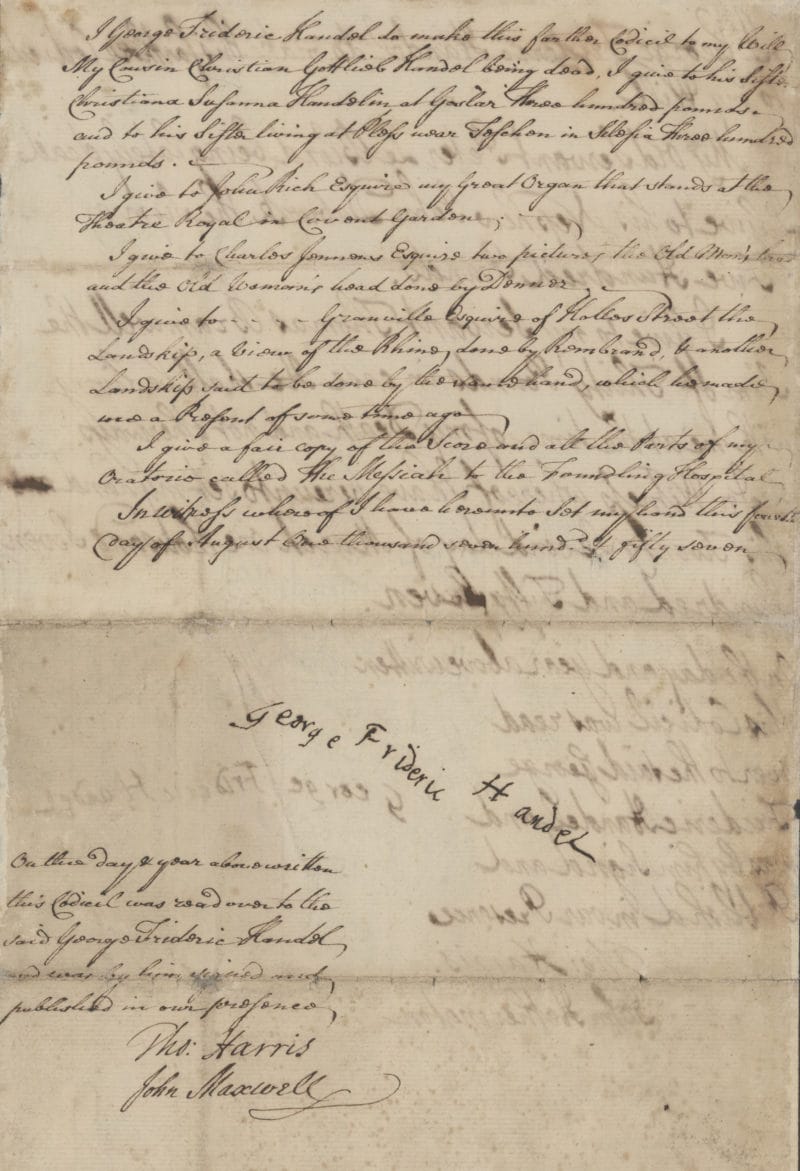 I George Frideric Handel do make this farther Codicil to my Will
My Cousin Christian Gottlieb Handel being dead, I give to his Sister
Christiana Susanna Handelin, at Goslar Three hundred pounds.
and to his Sister living at Pless near Teschen in Silesia Three hundred
pounds.
I give to John Rich Esquire my Great Organ that stands at the
Theatre Royal in Covent Garden;
I give to Charles Jennens Esquire two pictures the Old Man's head
and the Old Woman's head done by Denner.
I give to - - - - Granville Esquire of Holles Street the
Landskip, a view of the Rhine, done by Rembrand, & another
Landskip said to be done by the same hand, which he made
me a Present of some time ago
I give a fair copy of the Score and all the Parts of my
Oratorio called The Messiah to the Foundling Hospital
In witness whereof I have hereunto set my hand this fourth
day of August One thousand seven hund.d & fifty seven
George Frideric Handel
On the day & year above written
this Codicil was read over to the
said George Frideric Handel
and was by him signed and
published in our presence,
Tho: Harris
John Maxwell